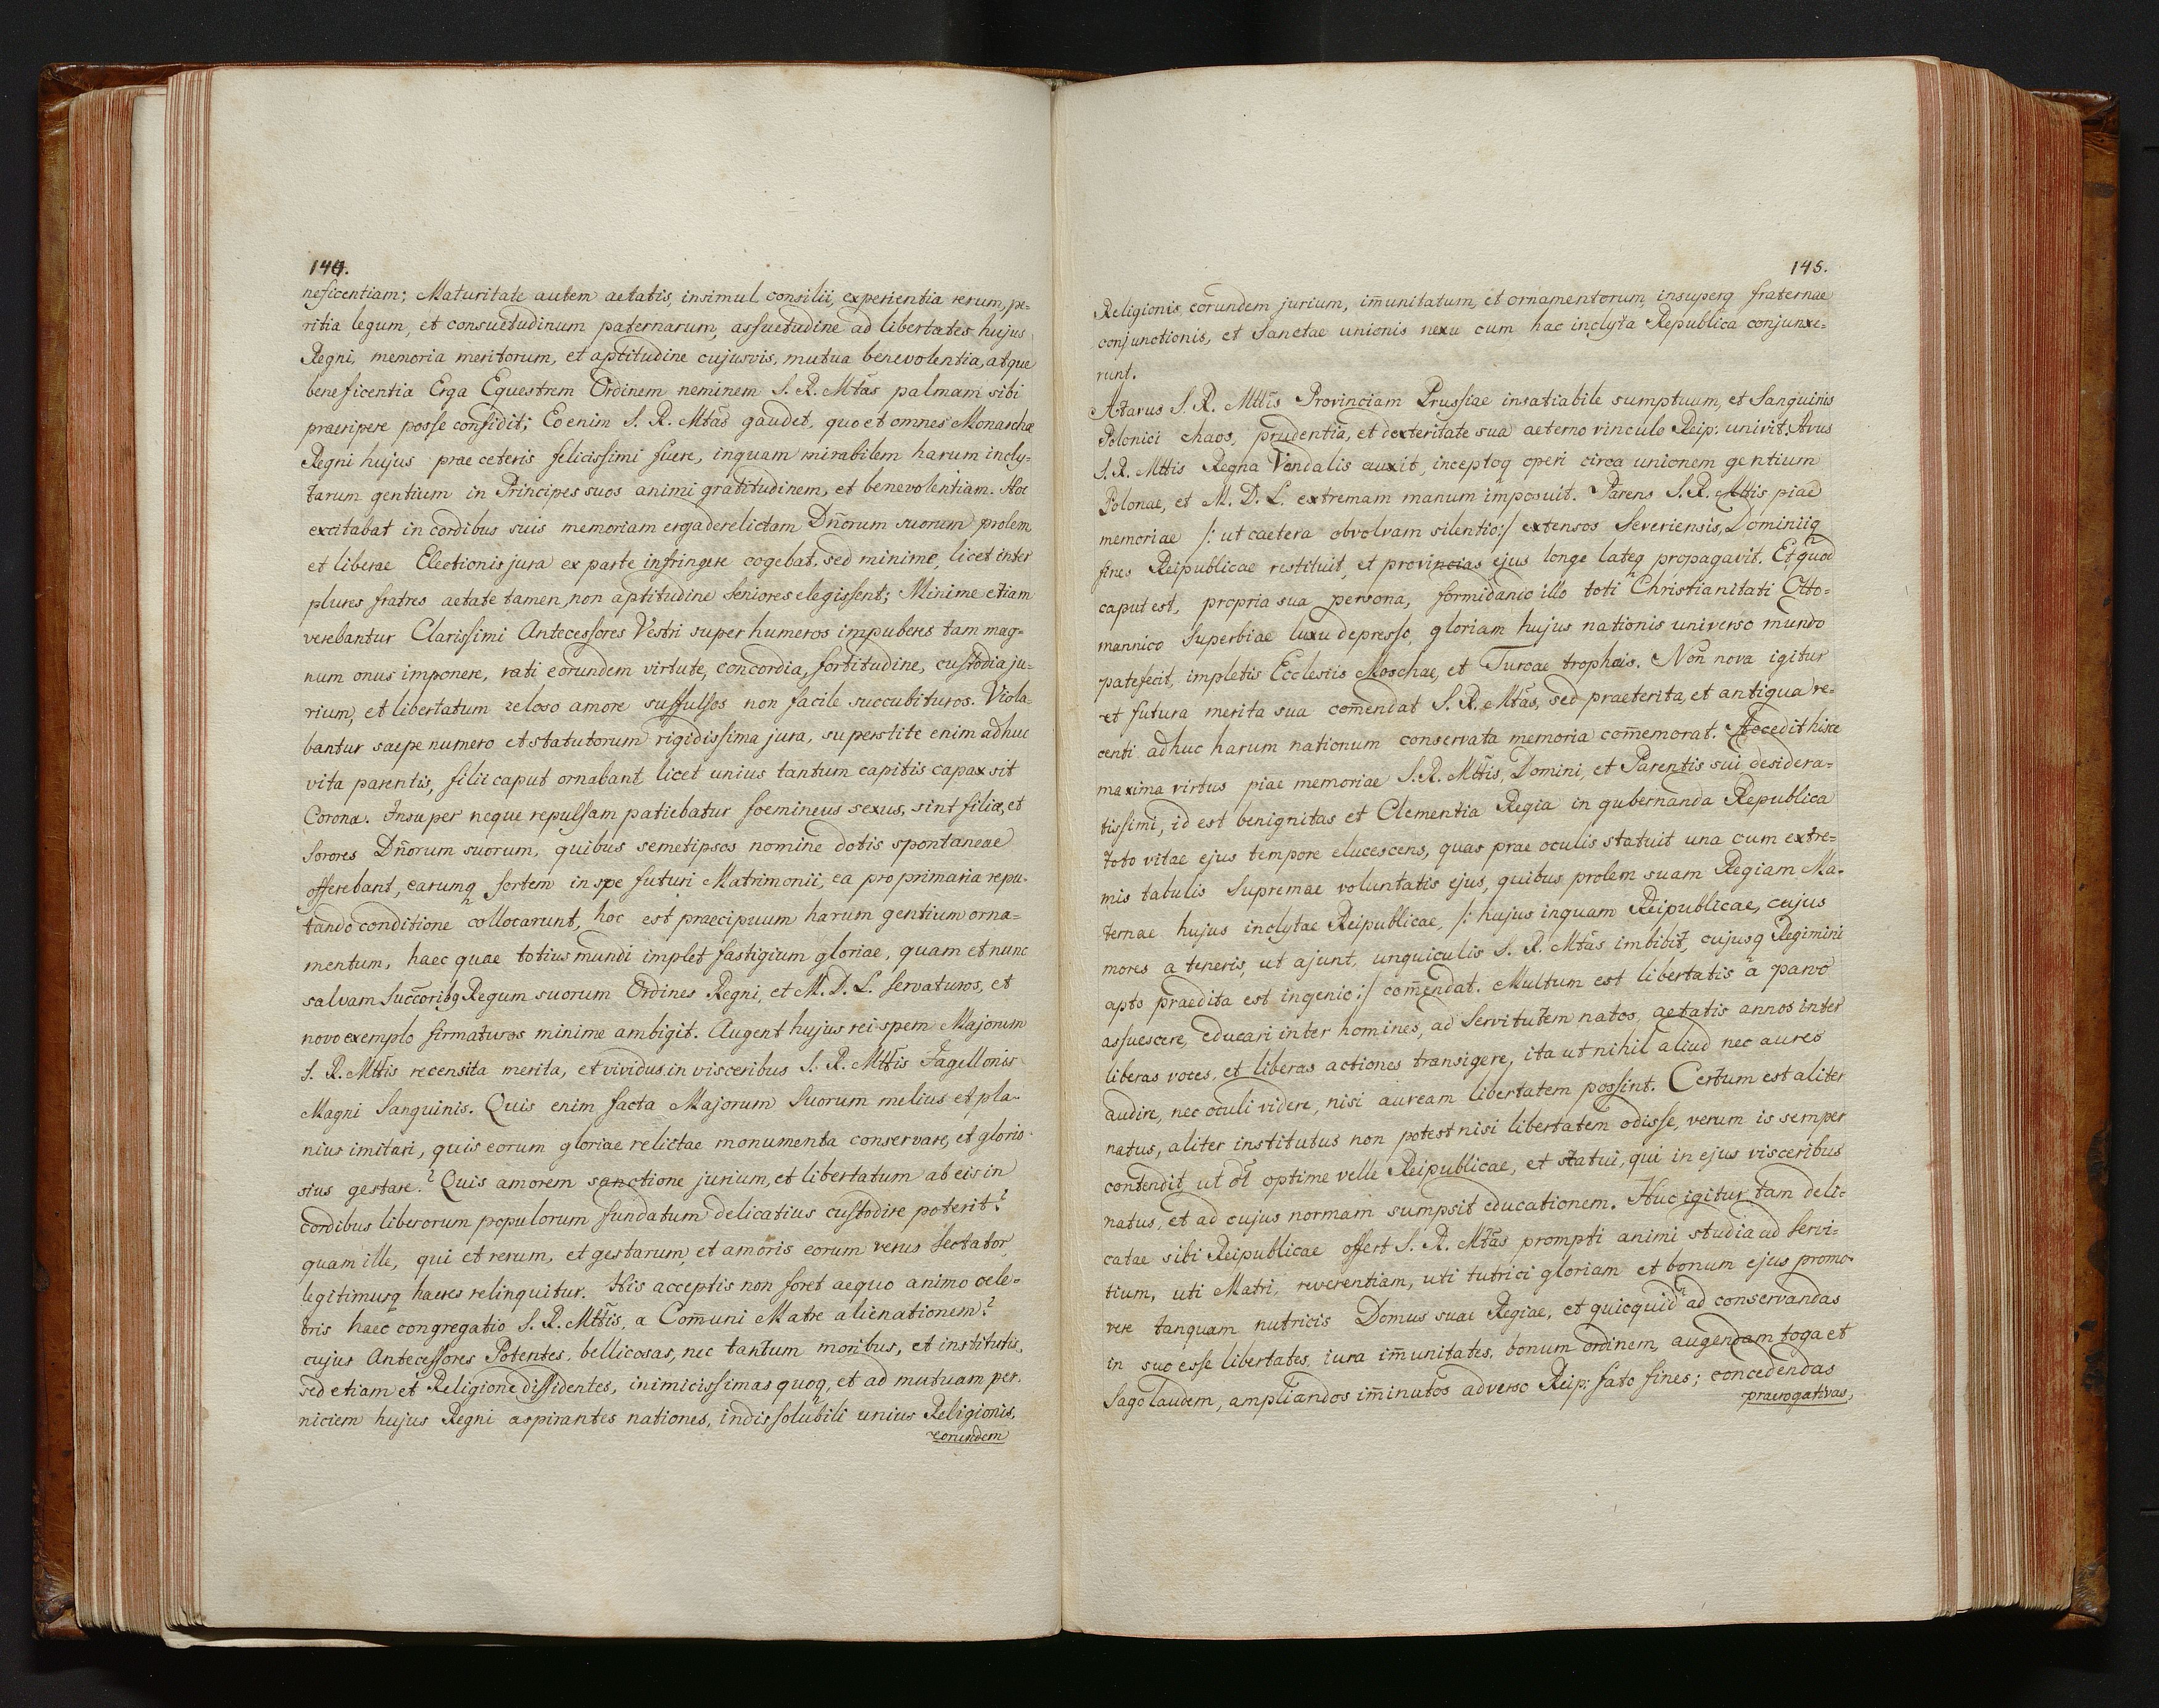 144.
neficentiam; Maturitate autem aetatis, insimul consilii, experientia rerum, pe-
ritia legum, et consuetudinum paternarum, assuetudine ad libertates hujus
Regni, memoria meritorum, et aptitudine cujusvis, mutua benevolentia, atque
beneficentia Erga Equestrem Ordinem neminem S. R. Mtãs palmam sibi
praeripere posse confidit; Eo enim S. R. Mtãs gaudet, quo et omnes Monarchæ
Regni hujus prae ceteris felicissimi fuere, inquam mirabilem harum incly-
tarum gentium in Principes suos animi gratitudinem, et benevolentiam. Hoc
excitabat in cordibus suis memoriam erga derelictam Dñorum suorum prolem
et liberae Electionis jura ex parte infringere cogebat, sed minime, licet inter
plures fratres aetate tamen non aptitudine Seniores elegissent; Minime etiam
verebantur Clarissimi Antecessores Vestri super humeros impuberes tam mag-
num onus imponere, rati eorundem virtute, concordia, fortitudine, custodia ju-
rium, et libertatum zeloso amore suffulsos non facile succubituros. Viola-
bantur saepe numero et statutorum rigidissima jura, superstite enim adhuc
vita parentis, filii caput ornabant licet unius tantum capitis capax sit
Corona. Insuper neque repulsam patiebatur foemineus sexus, sint filiæ, et
Sorores Dñorum suorum, quibus semetipsos nomine dotis spontaneae
offerebant, earumq sortem in spe futuri Matrimonii, ea pro primaria repu-
tando conditione collocarunt, hoc est praecipuum harum gentium orna-
mentum, haec quae totius mundi implet fastigium gloriae, quam et nunc
salvam Succoribq Regum suorum Ordines Regni, et M. D. L. servaturos, et
novo exemplo firmaturos minime ambigit. Augent hujus rei spem Majorum
S. R. Mttis recensita merita, et vividus in visceribus S. R. Mttis Jagellonis
Magni Sanguinis. Quis enim facta Majorum Suorum melius et pla-
nius imitari, quis eorum gloriae relictae monumenta conservare, et glorio-
sius gestare? Quis amorem sanctione jurium, et libertatum ab eis in
cordibus liberorum populorum fundatum delicatius custodire poterit?
quam ille, qui et rerum, et gestarum, et amoris eorum verus Sectator,
legitimusq haeres relinquitur. His acceptis non foret aequo animo cele-
bris haec congregatio S. R. Mttis, a Com̃uni Matre alienationem?
cujus Antecessores Potentes, bellicosas, nec tantum moribus, et institutis,
sed etiam et Religione dissidentes, inimicissimas quoq, et ad mutuam per-
niciem hujus Regni aspirantes nationes, indissolubili unius Religionis,
eorundem
145.
Religionis, eorundem jurium, im̃unitatum, et ornamentorum, insuperq fraternae
conjunctionis, et Sanctae unionis nexu cum hac inclyta Republica conjunxe-
runt.
Atavus S. R. Mttis Provinciam Prussiae insatiabile sumptuum, et Sanguinis
Polonici chaos, prudentia, et dexteritate sua aeterno vinculo Reip: univit. Avus
S. R. Mttis Regna Vandalis auxit, inceptoq operi circa unionem gentium
Polonae, et M. D. L. extremam manum imposuit. Parens S. R. Mttis piae
memoriae /: ut caetera obvolvam silentio:/ extensos Severiensis, Dominiiq
fines Reipublicae restituit, et provincias ejus longe lateq propagavit. Et quod
caput est, propria sua persona, formidando illo toti Christianitati Otto-
mannico Superbiae luxu depresso, gloriam hujus nationis universo mundo
patefecit, impletis Ecclesiis Moschae, et Turcae trophæis. Non nova igitur
et futura merita sua com̃endat S. R. Mtãs, sed praeterita, et antiqua re-
centi adhuc harum nationum conservata memoria com̃emorat. Accedit hisce
maxima virtus piae memoriae S. R. Mttis, Domini, et Parentis sui desidera-
tissimi, id est benignitas et Clementia Regia in gubernanda Republica
toto vitae ejus tempore elucescens, quas prae oculis statuit una cum extre-
mis tabulis Supremae voluntatis ejus, quibus prolem suam Regiam Ma-
ternae hujus inclytae Reipublicae, /: hujus inquam Reipublicae, cujus
mores a teneris, ut ajunt, unguiculis S. R. Mtãs imbibit, cujusq Regimini
apto praedita est ingenio:/ com̃endat. Multum est libertatis a parvo
assuescere, educari inter homines, ad Servitutem natos, aetatis annos inter
liberas voces, et liberas actiones transigere, ita ut nihil aliud nec aures
audire, nec oculi videre, nisi auream libertatem possint. Certum est aliter
natus, aliter institutus non potest nisi libertatem odisse, verum is semper
contendit, ut optime velle Reipublicae, et statui, qui in ejus visceribus
natus, et ad cujus normam sumpsit educationem. Huc igitur tam deli-
catae sibi Reipublicae offert S. R. Mtãs prompti animi studia ad servi-
tium, uti Matri, reverentiam, uti tutrici gloriam et bonum ejus promo-
vere tanquam nutricis Domus suae Regiae, et quicquid ad conservandas
in suo esse libertates, iura im̃unitates, bonum ordinem, augendam toga et
Sago laudem, ampliandos im̃inutos adverso Reip: fato fines; concedendas
praerogativas,